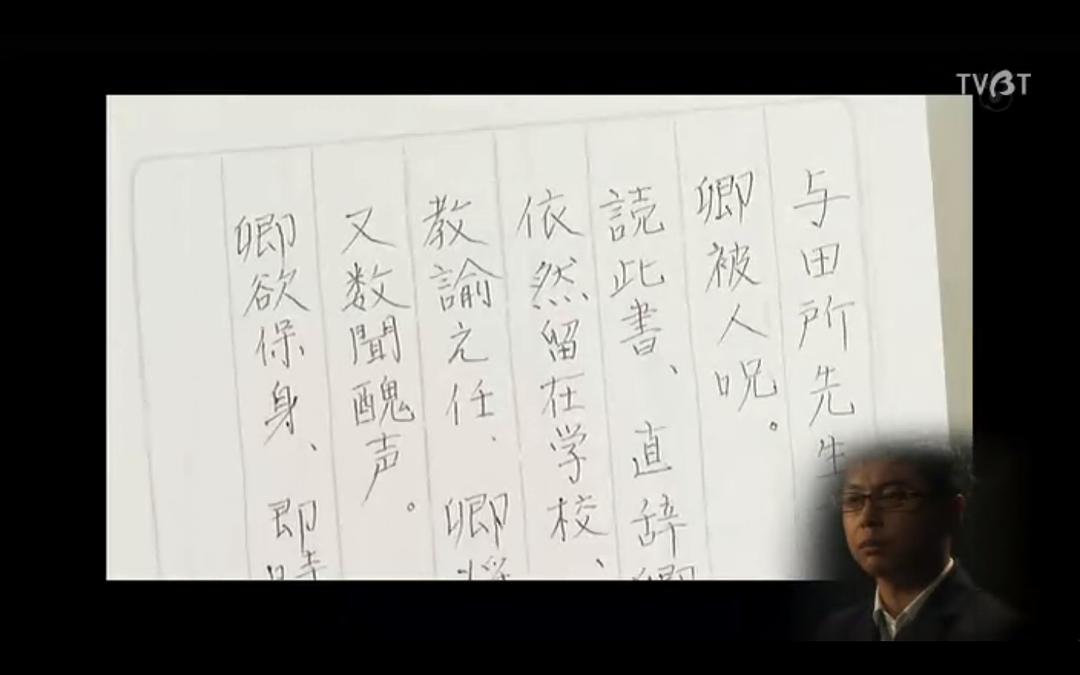 与田所先生
卿被人呪。
読此書、直辞卿
依然留在学校、
教諭之任、卿
又数聞醜声。
卿欲保身、即時
TVBT